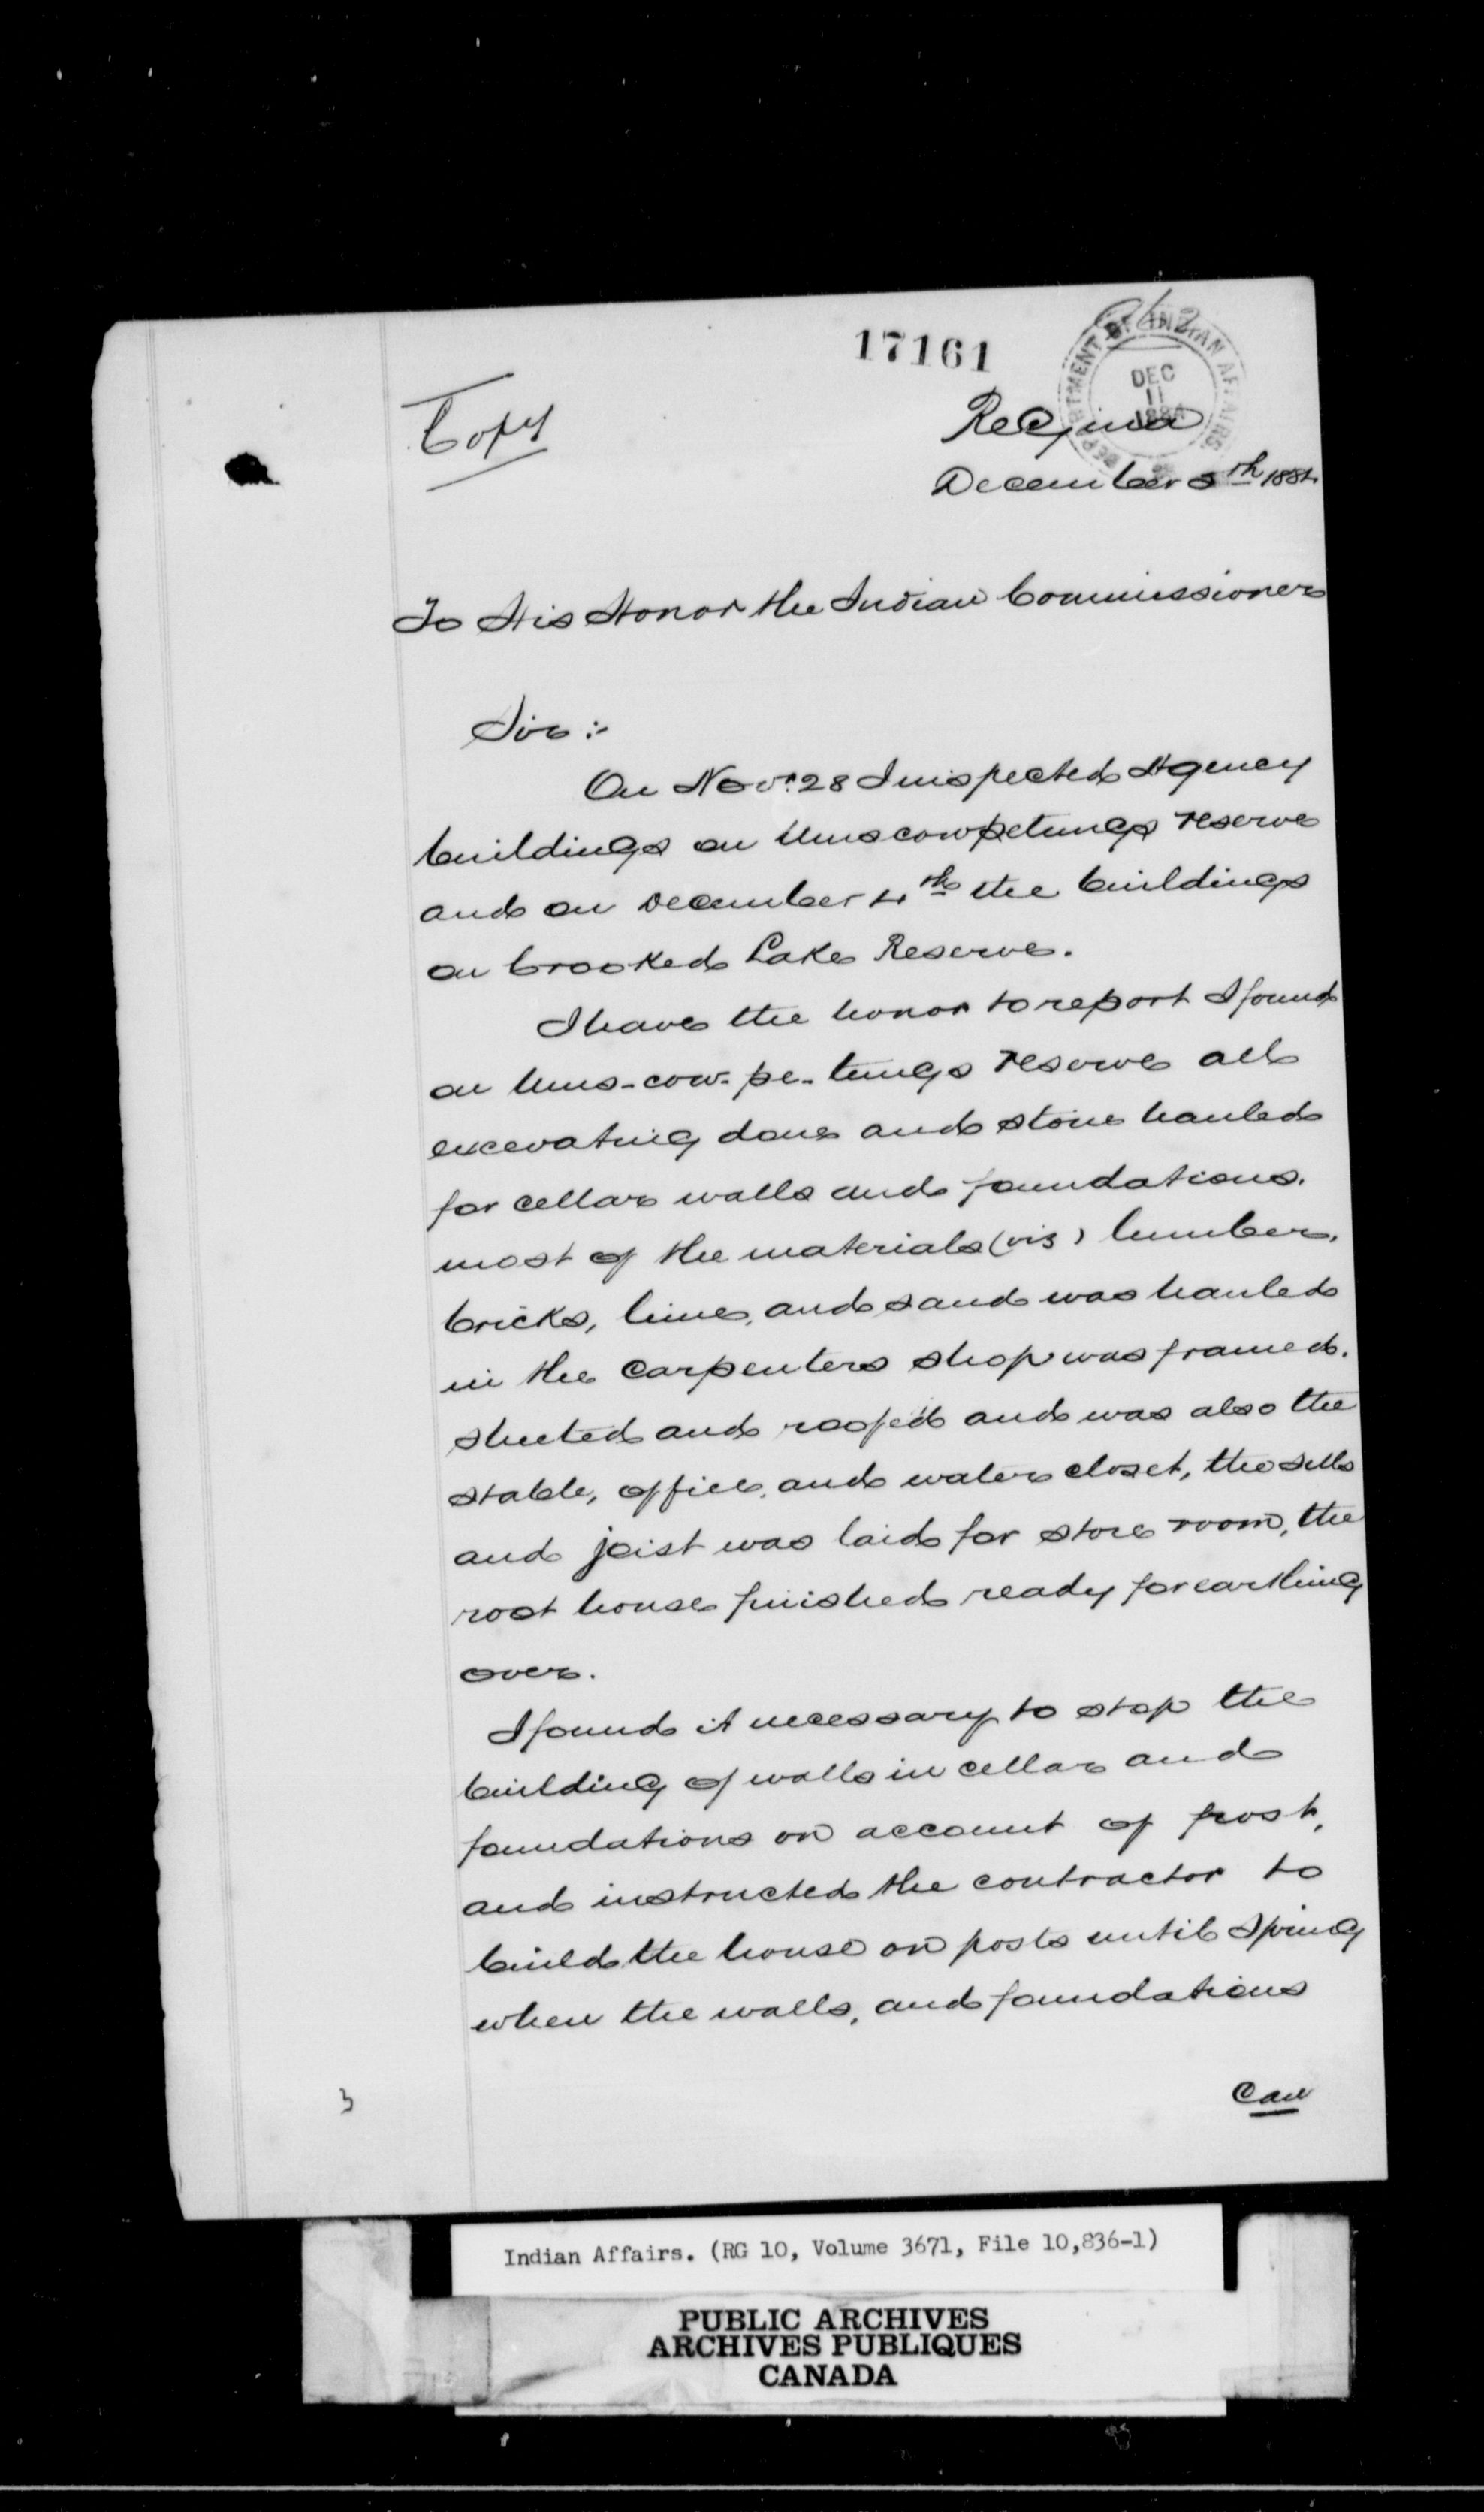 17161
DEPARTMENT OF INDIAN AFFAIRS
DEC
11
1884
Copy
Regina
December 5th 1884
To His Honor the Indian Commissioner
Sir :-
On Novr. 28 I inspected Agency
buildings on Muscowpetungs reserve
and on December 4th the buildings
on Crooked Lake Reserve.
I have the honor to report I found
on Mus-cow-pe-tungs reserve all
excevating done and stone hauled
for cellar walls and foundations.
most of the materials (viz) lumber,
bricks, lime, and sand was hauled
in the carpenters shop was framed.
sheeted and roofed and was also the
stable, office, and water closet, the sills
and joist was laid for store room, the
root house finished ready for earthing
over.
I found it necessary to stop the
building of walls in cellar and
foundations on account of frost,
and instructed the contractor to
build the house on posts until Spring
when the walls, and foundations
can
3
Indian Affairs. (RG 10, Volume 3671, File 10,836-1)
PUBLIC ARCHIVES
ARCHIVES PUBLIQUES
CANADA